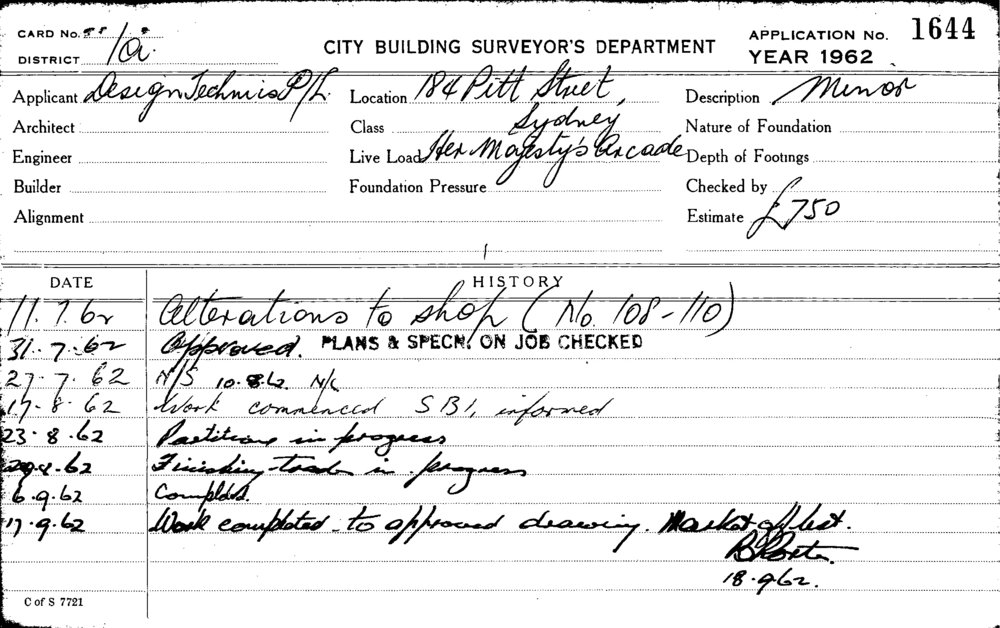 CARD No. APPLICATION No. 1644
DISTRICT 1a. CITY BUILDING SURVEYOR'S DEPARTMENT YEAR 1962
Applicant Design Technics P/L. Location 184 Pitt Street, Description Minor
Architect Class Sydney Nature of Foundation
Engineer Live Load Her Majesty's Arcade Depth of Footings
Builder Foundation Pressure Checked by
Alignment Estimate £750
DATE HISTORY
11.7.62 Alterations to shop (No. 108-110)
31.7.62 Approved. PLANS & SPECN. ON JOB CHECKED
27.7.62 N/S 10.8.62 N/C
17.8.62 Work commenced SBI, informed
23.8.62 Partitions in progress
29.8.62 Finishing trades in progress
6.9.62 Completed.
17.9.62 Work completed to approved drawing. Market off list.
18.9.62.
C of S 7721